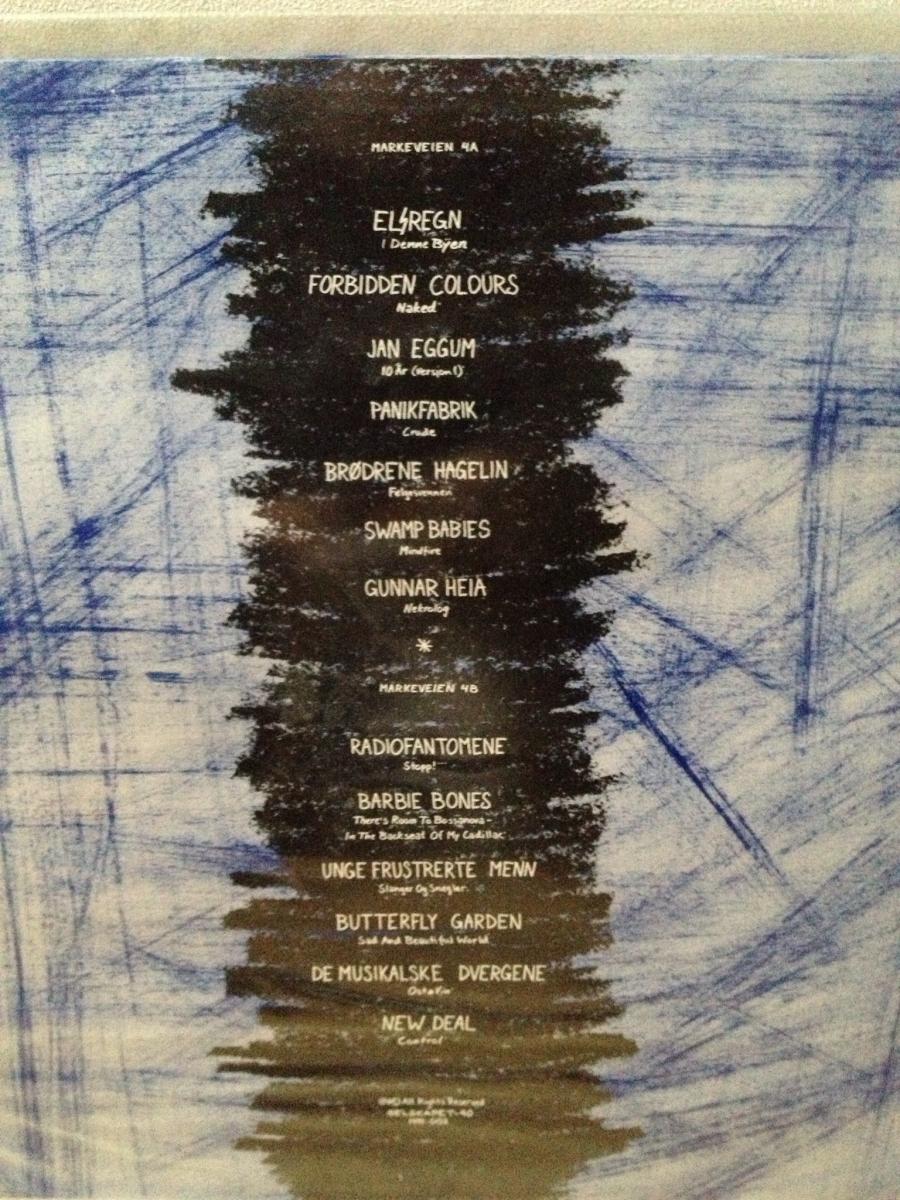 MARKEVEIEN 4A
ELSREGN
I Denne Byen
FORBIDDEN COLOURS
Naked
JAN EGGUM
10 År (versjon 1)
PANIKFABRIK
Crude
BRØDRENE HAGELIN
Følgesvennen
SWAMP BABIES
Mindfire
GUNNAR HEIA
Nekrolog
*
MARKEVEIEN 4B
RADIOFANTOMENE
Stopp!
BARBIE BONES
There's Room To Bossanova -
In The Backseat Of My Cadillac
UNGE FRUSTRERTE MENN
Slanger Og Snegler
BUTTERFLY GARDEN
Sad And Beautiful World
DE MUSIKALSKE DVERGENE
NEW DEAL
Control
All Rights Reserved